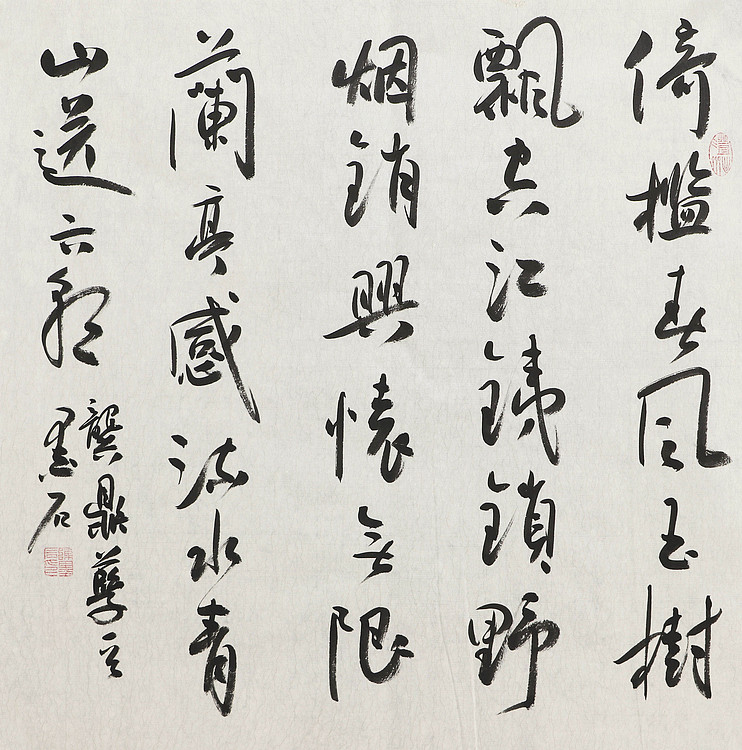 倚檻春风玉樹
飄空江銕鎖野
烟銷興懷無限
蘭亭感流水青
山送六朝
龔鼎孳
墨石